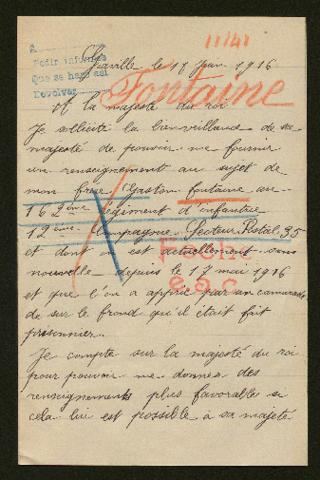 A
Pedir informes
Que se haga así
Devolver
11141
le 17 Juin 1916
Fontaine
A la majesté du roi
Je sollicite la bienveillance de sa
majesté de pouvoir me fournir
un renseignement au sujet de
mon frère Gaston fontaine au
162ème régiment d'infanterie
12ème Compagne Secteur Postal 35
et dont on est actuellement sans
nouvelle depuis le 17 mai 1916
et que l'on a appris par un camarade
de sur le frond qu'il était fait
prisonnier.
Je compte sur la majesté du roi
pour pouvoir me donner des
renseignements plus favorable si
cela lui est possible a sa majeté